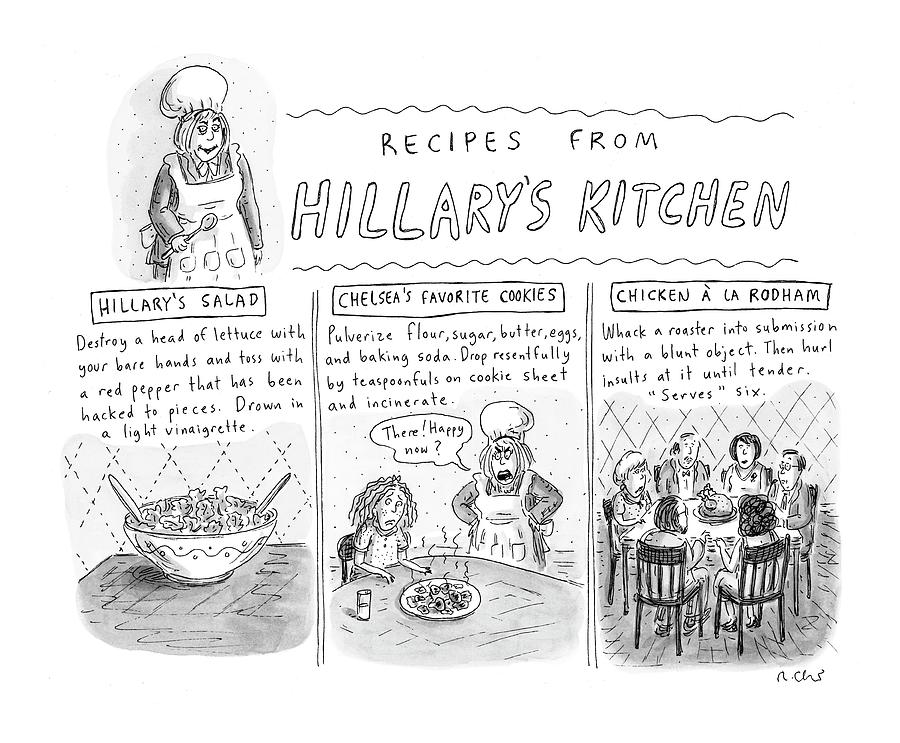 RECIPES FROM
HILLARY'S KITCHEN
HILLARY'S SALAD
Destroy a head of lettuce with
your bare hands and toss with
a red pepper that has been
hacked to pieces. Drown in
a light vinaigrette.
CHELSEA'S FAVORITE COOKIES
Pulverize flour, sugar, butter, eggs,
and baking soda. Drop resentfully
by teaspoonfuls on cookie sheet
and incinerate.
There! Happy
now?
CHICKEN À LA RODHAM
Whack a roaster into submission
with a blunt object. Then hurl
insults at it until tender.
"Serves" six.